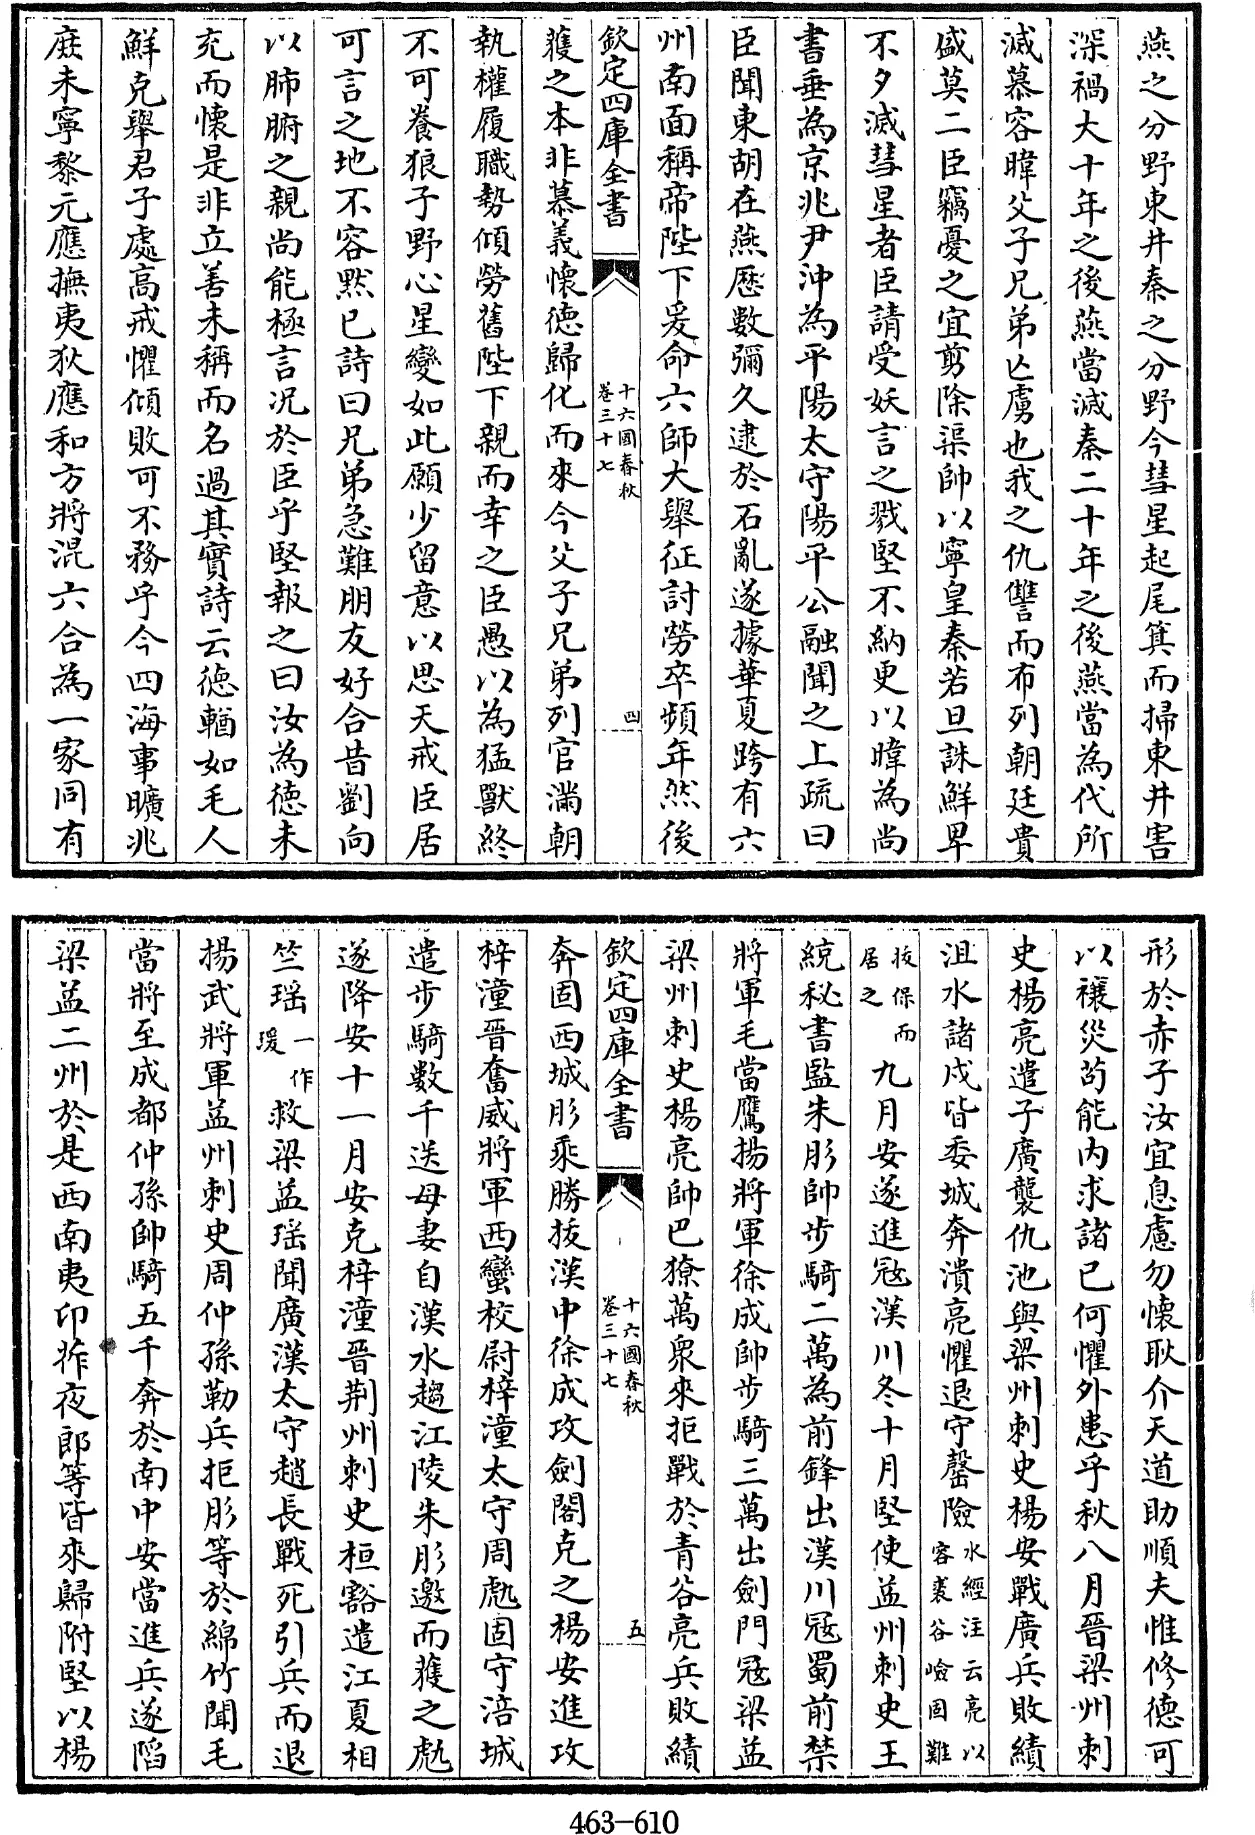 燕之分野東井秦之分野今彗星起尾箕而掃東井害
深禍大十年之後燕當滅秦二十年之後燕當為代所
滅慕容暐父子兄弟亡虜也我之仇讐而布列朝廷貴
盛莫二臣竊憂之宜剪除渠帥以寧皇秦若旦誅鮮卑
不夕滅彗星者臣請受妖言之戮堅不納更以暐為尚
書垂為京兆尹沖為平陽太守陽平公融聞之上疏曰
臣聞東胡在燕歷數彌久逮於石亂遂據華夏跨有六
州南面稱帝陛下爰命六師大舉征討勞卒頻年然後
欽定四庫全書
十六國春秋
卷三十七
四
獲之本非慕義懷德歸化而來今父子兄弟列官滿朝
執權履職勢傾勞舊陛下親而幸之臣愚以為猛獸終
不可養狼子野心星變如此願少留意以思天戒臣居
可言之地不容黙已詩曰兄弟急難朋友好合昔劉向
以肺腑之親尚能極言況於臣乎堅報之曰汝為德未
充而懷是非立善未稱而名過其實詩云德輶如毛人
鮮克舉君子處高戒懼傾敗可不務乎今四海事曠兆
庶未寧黎元應撫夷狄應和方將混六合為一家同有
形於赤子汝宜息慮勿懷耿介天道助順夫惟修德可
以禳災苟能内求諸已何懼外患乎秋八月晉梁州刺
史楊亮遣子廣襲仇池與梁州刺史楊安戰廣兵敗績
沮水諸戍皆委城奔潰亮懼退守磬險
水經注云亮以
容裘谷嶮固難
拔保而
居之
九月安遂進冦漢川冬十月堅使益州刺史王
統秘書監朱肜帥步騎二萬為前鋒出漢川冦蜀前禁
將軍毛當鷹揚將軍徐成帥步騎三萬出劍門冦梁益
梁州刺史楊亮帥巴獠萬衆來拒戰於青谷亮兵敗績
欽定四庫全書
十六國春秋
卷三十七
五
奔固西城肜乘勝拔漢中徐成攻劍閣克之楊安進攻
梓潼晉奮威將軍西蠻校尉梓潼太守周虓固守涪城
遣步騎數千送母妻自漢水趨江陵朱肜邀而獲之虓
遂降安十一月安克梓潼晉荆州刺史桓豁遣江夏相
竺瑶
一作
瑗
救梁益瑶聞廣漢太守趙長戰死引兵而退
揚武將軍益州刺史周仲孫勒兵拒肜等於綿竹聞毛
當將至成都仲孫帥騎五千奔於南中安當進兵遂䧟
梁益二州於是西南夷印筰夜郎等皆來歸附堅以楊
463-610